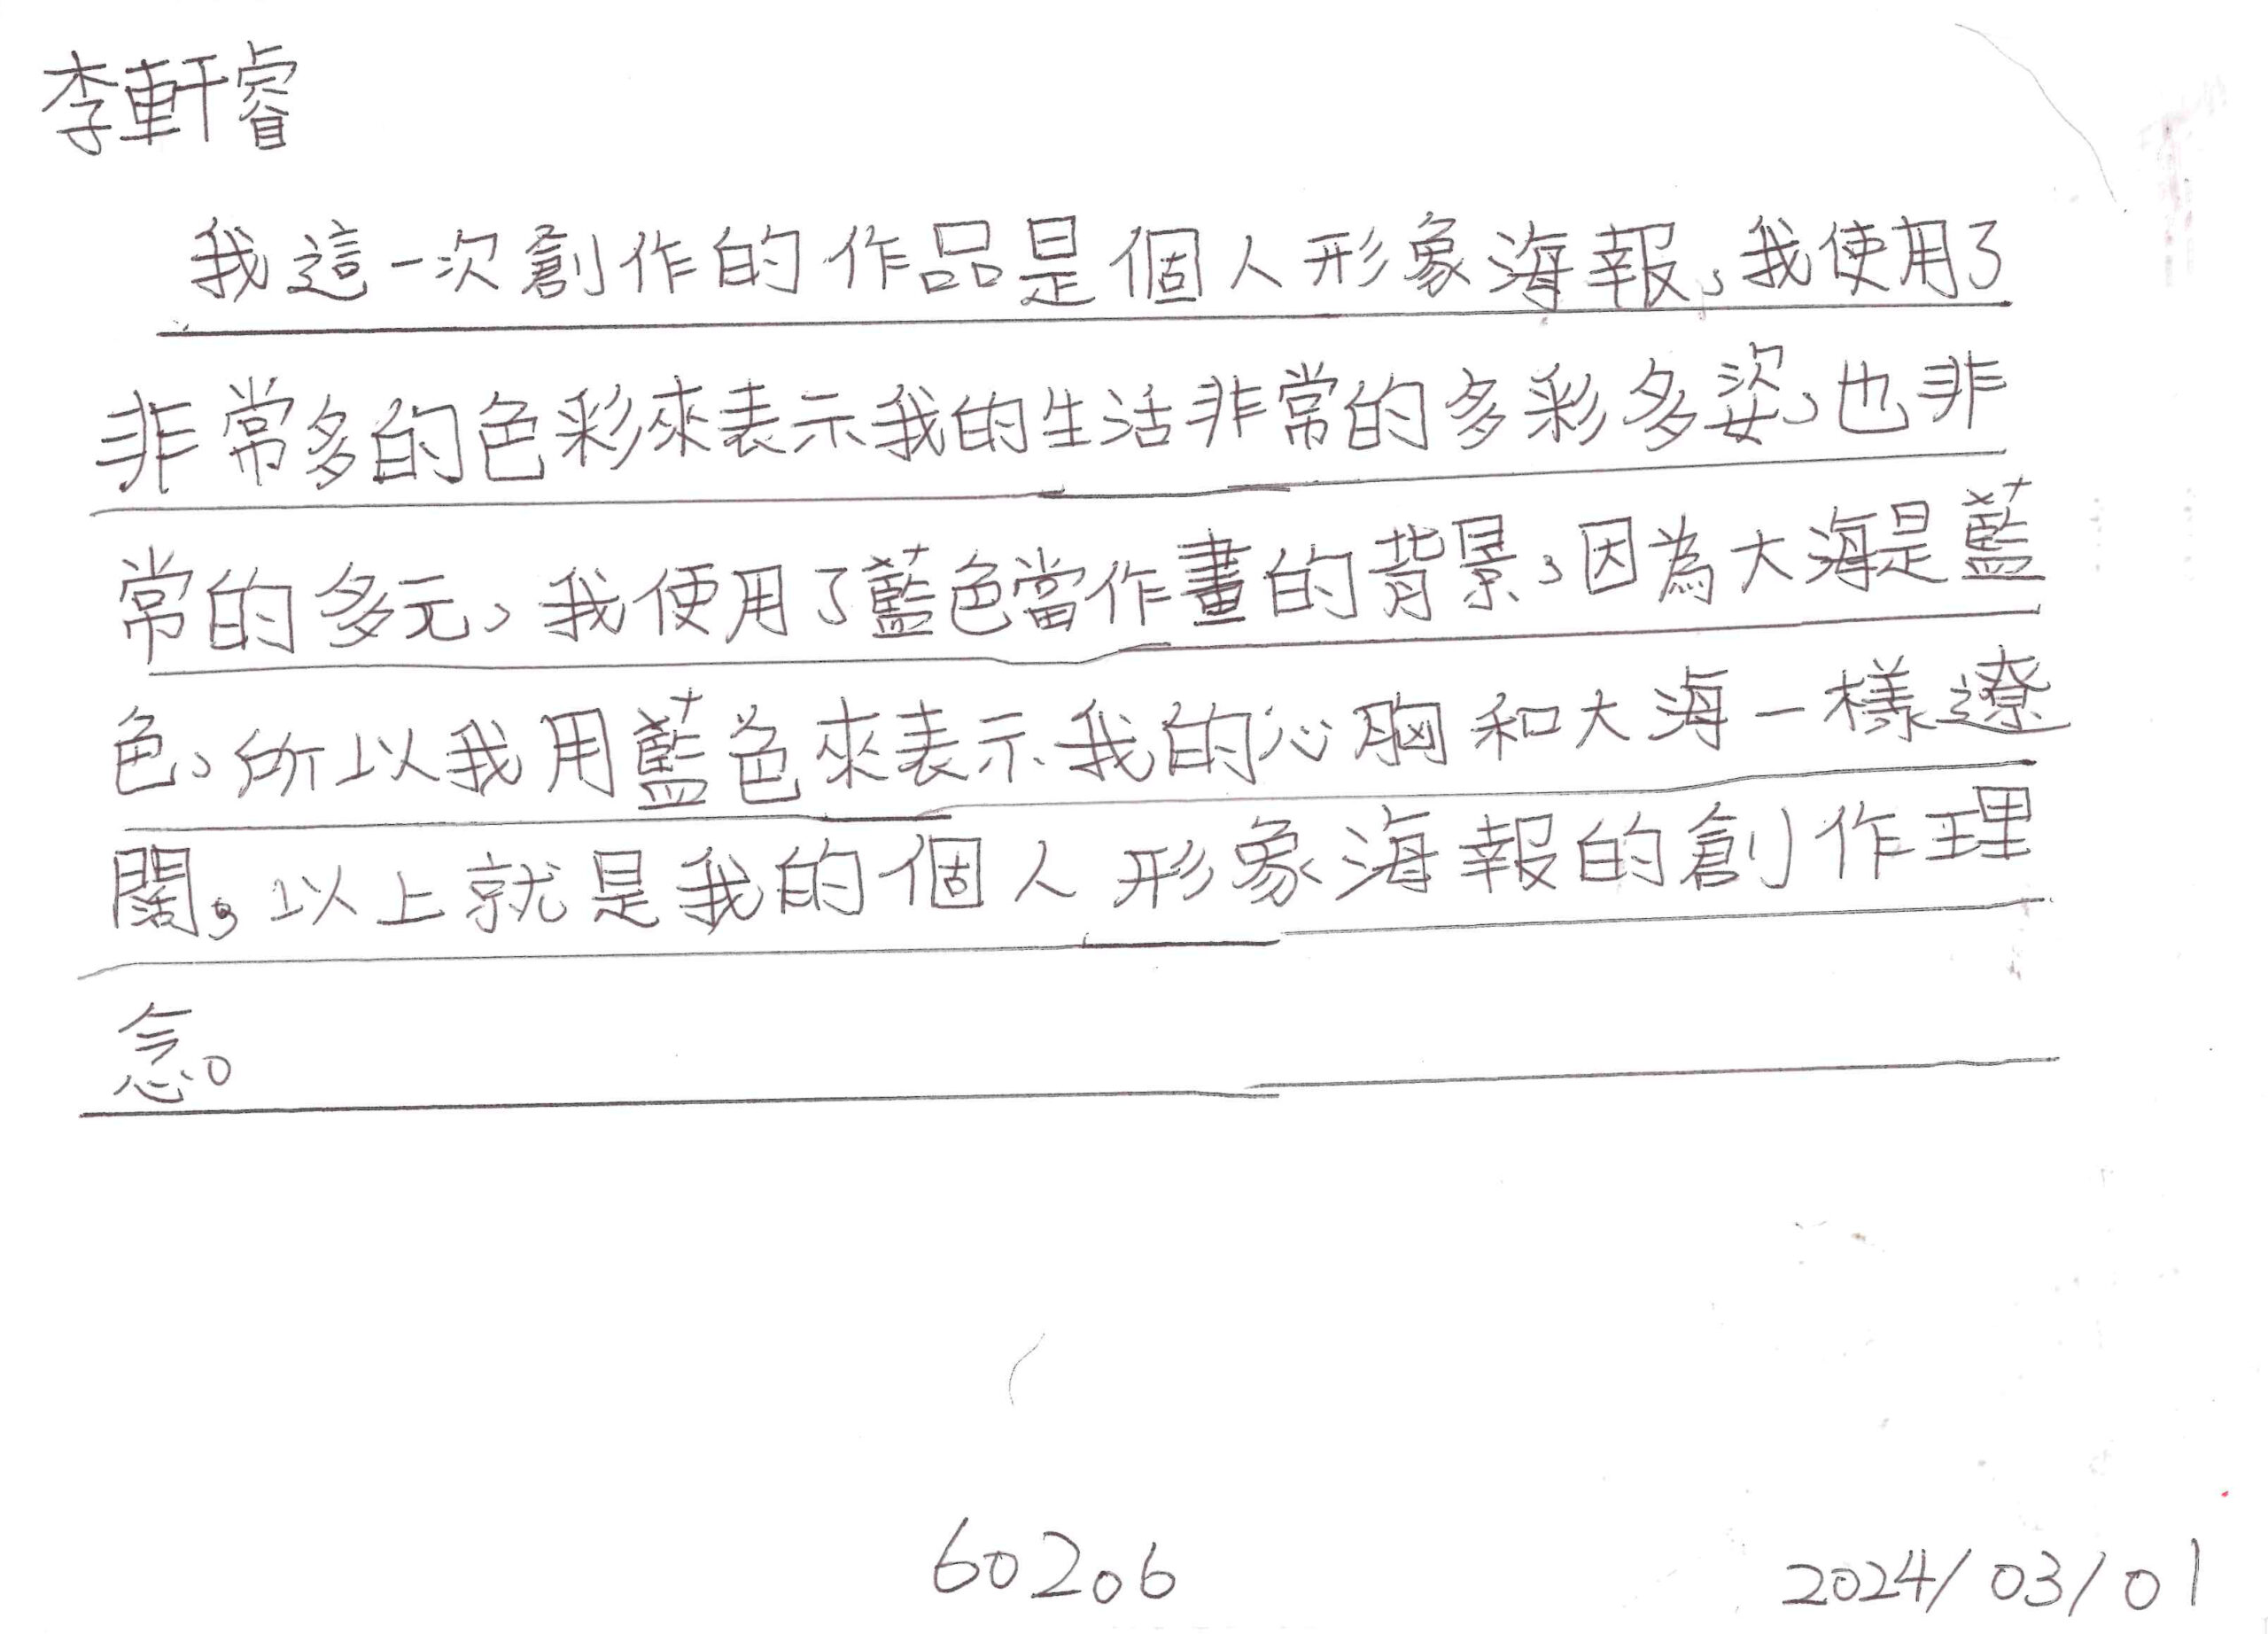 李軒睿
我這一次創作的作品是個人形象海報，我使用了
非常多的色彩來表示我的生活非常的多彩多姿，也非
常的多元，我使用了藍色當作畫的背景，因為大海是藍
色，所以我用藍色來表示我的心胸和大海一樣遼
闊，以上就是我的個人形象海報的創作理
念。
60206
2024/03/01